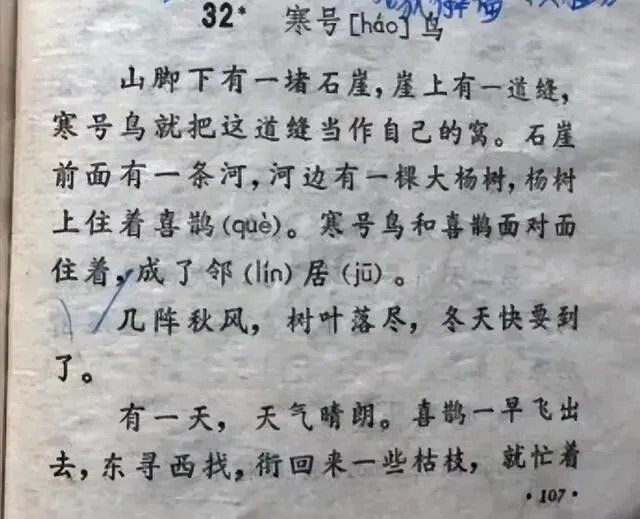 32* 寒号[háo]鸟
山脚下有一堵石崖，崖上有一道缝，
寒号鸟就把这道缝当作自己的窝。石崖
前面有一条河，河边有一棵大杨树，杨树
上住着喜鹊(què)。寒号鸟和喜鹊面对面
住着，成了邻(lín)居(jū)。
几阵秋风，树叶落尽，冬天快要到
了。
有一天，天气晴朗。喜鹊一早飞出
去，东寻西找，衔回来一些枯枝，就忙着
·107·